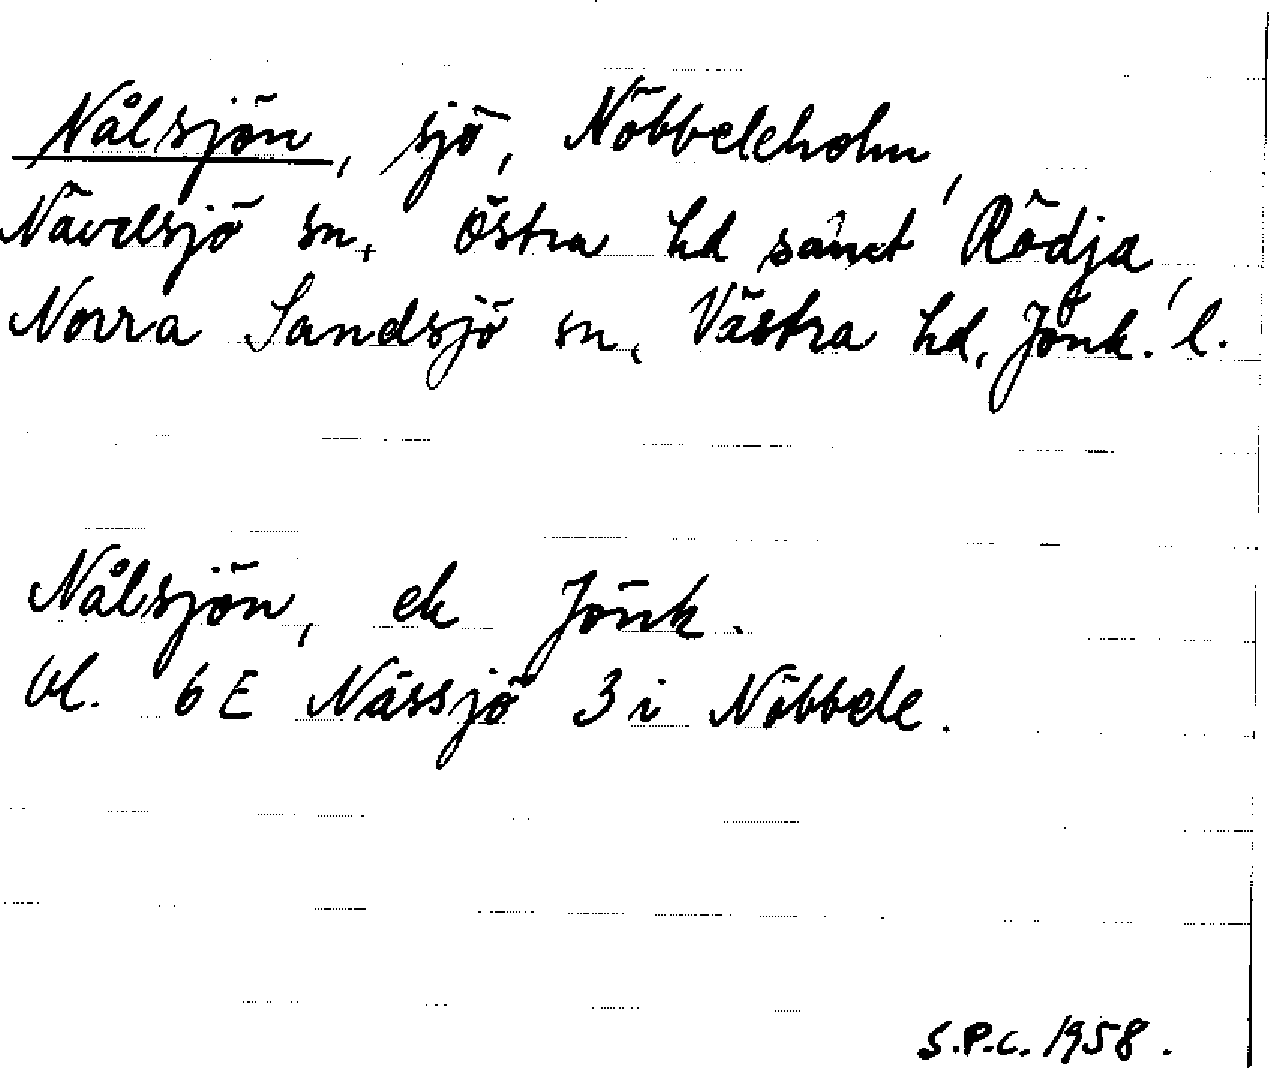 Nålsjön, sjö, Nöbbeleholm,
Nävelsjö sn, Östra hd samt Rödja,
Norra Sandsjö sn, Västra hd, Jönk. l.
Nålsjön, ek Jönk.
bl. 6 E Nässjö 3 i Nöbbele.
S.P.C. 1958.